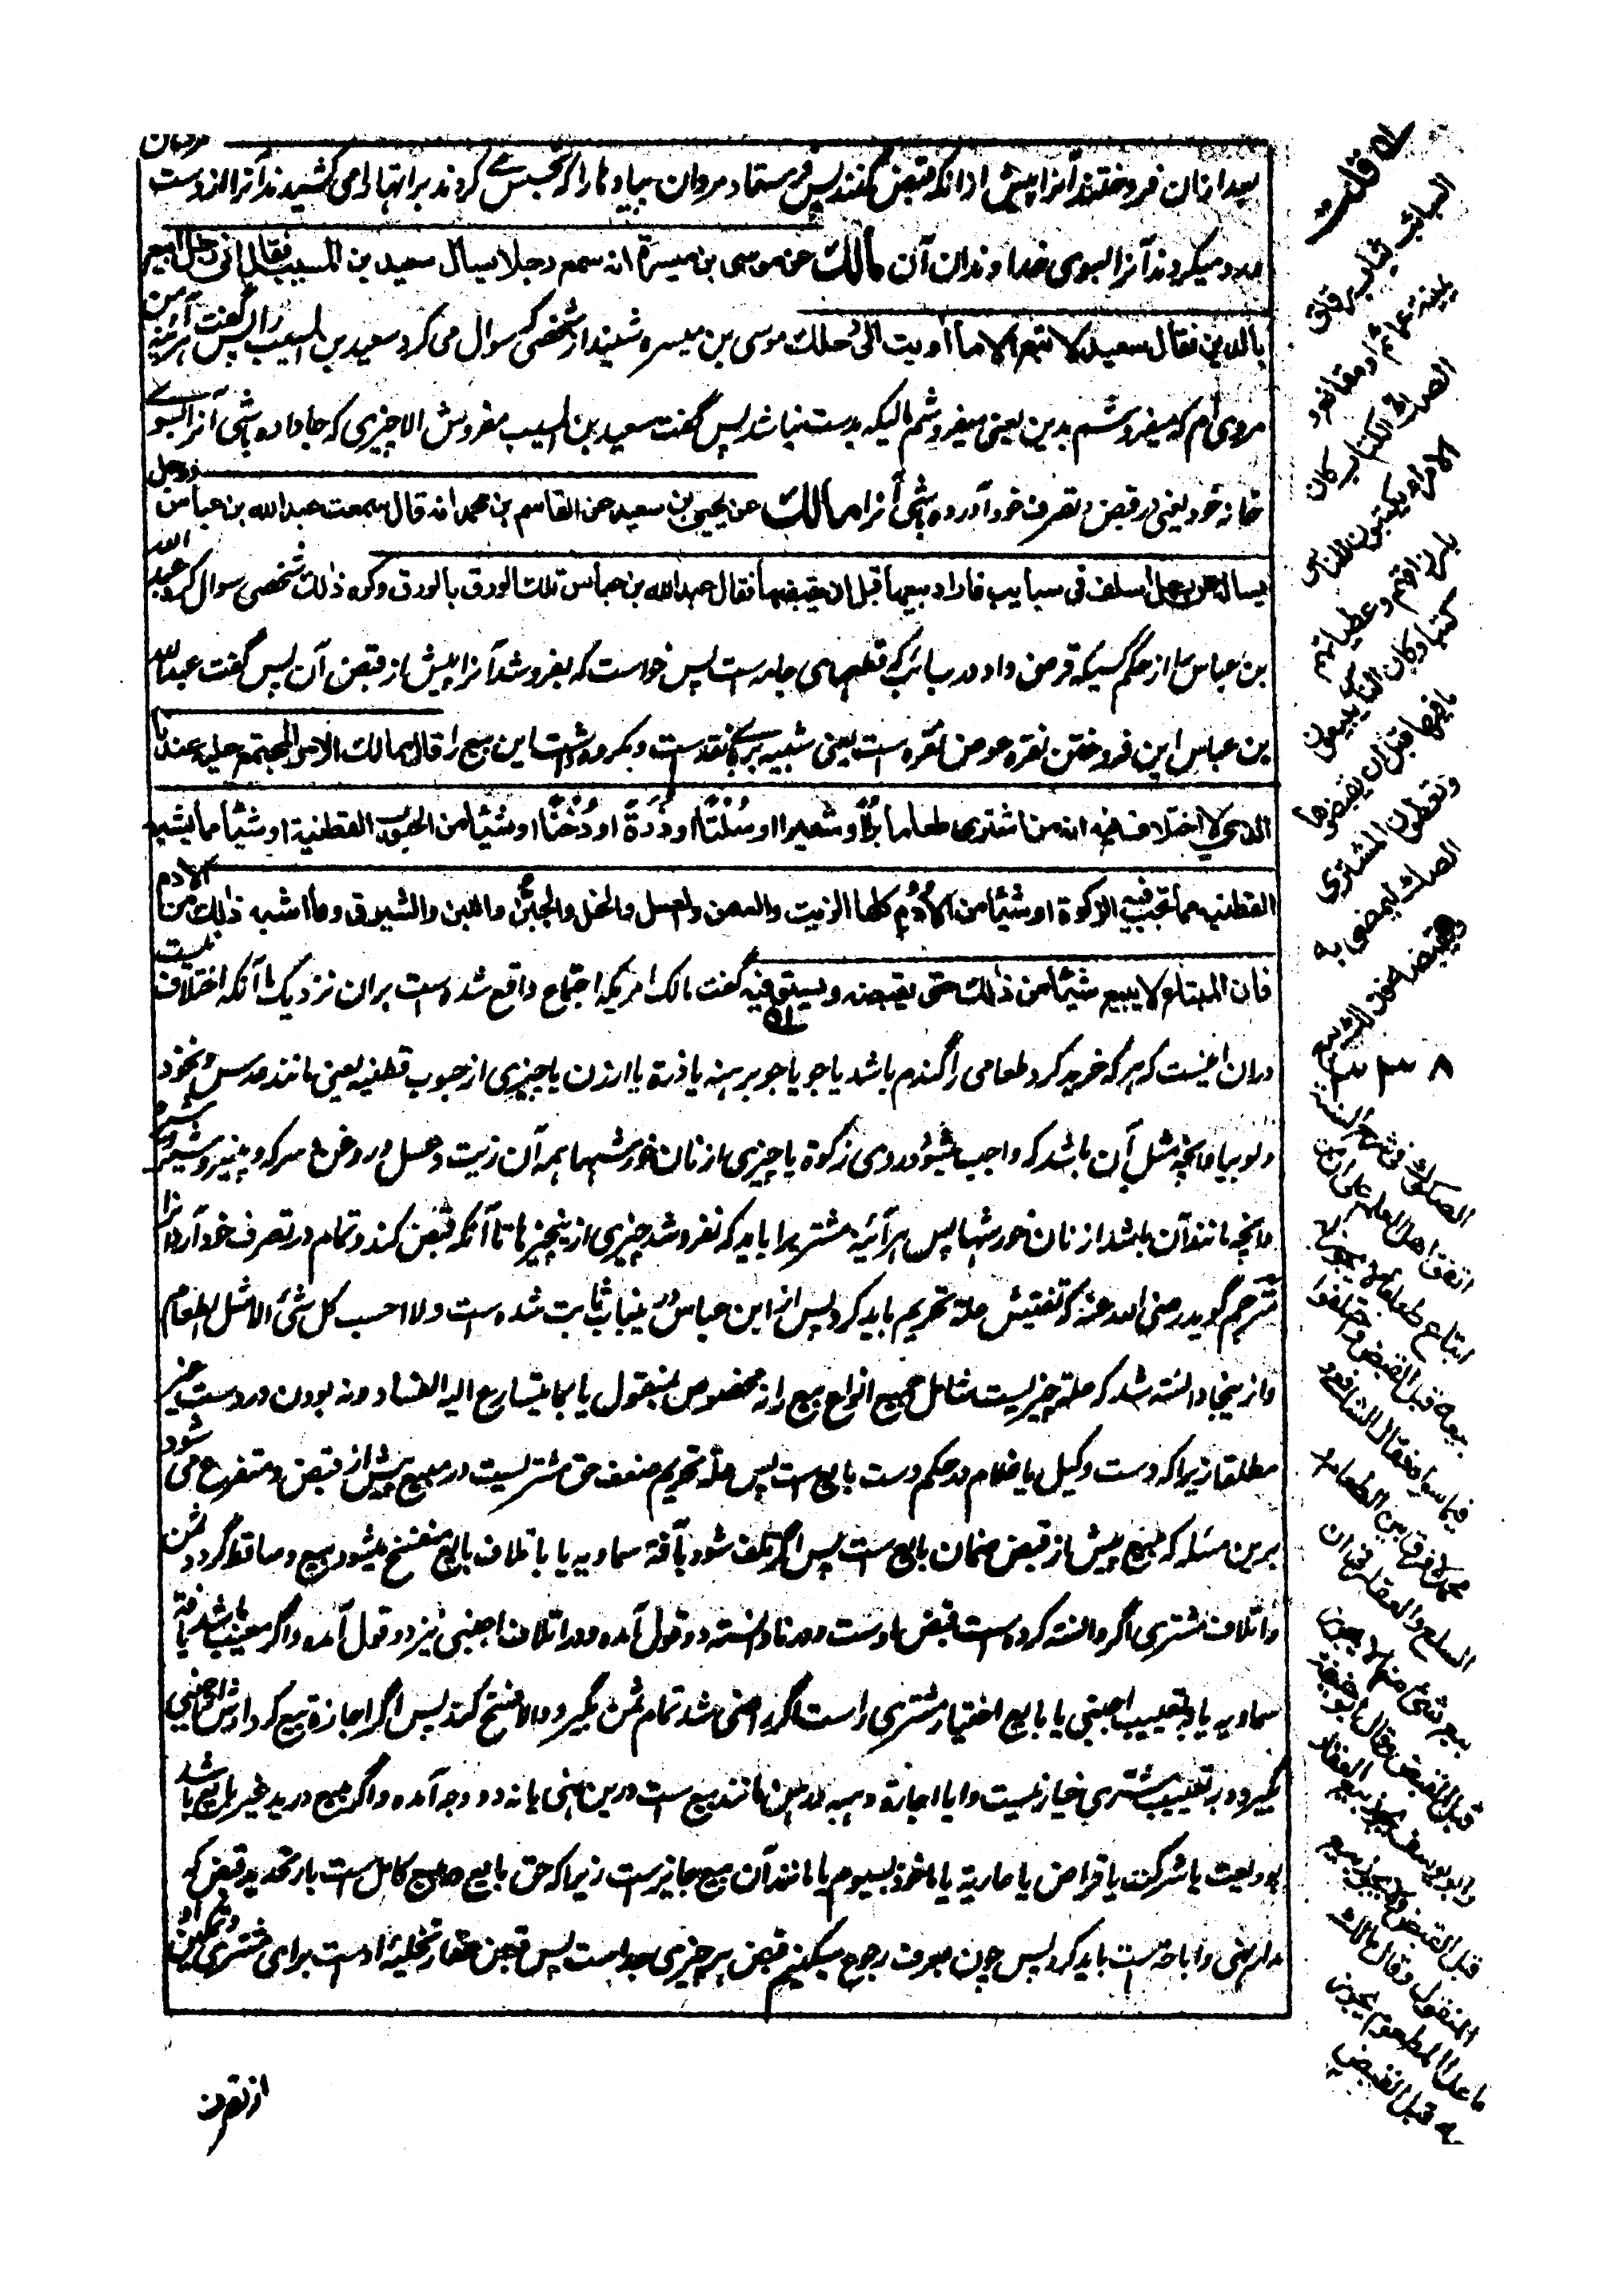 بعد ازان فروختند آنرا پیش ازانکه قبض کنند پس فرستاد مروان پیادها را که تجسس کردند برانتها را می کشیدند آنرا از دست مردمان
و رد میکردند آنرا بسوی خداوندان آن مالك عن موسى بن ميسرة انه سمع رجلا يسأل سعيد بن المسيب فقال اني رجل ابيع
بالدين فقال سعيد لا تبع الا ما اويت الى رحلك موسی بن میسره شنید از شخصی که سوال می کرد سعید بن المسیب را پس گفت هر آئینه من
مردی ام که میفروشم بدین یعنی میفروشم مالیکه بدست نباشد پس گفت سعید بن المسیب مفروش الا چیزی که جا داده باشی آنرا بسوے
خانه خود یعنی در قبض و تصرف خود آورده باشی آنرا مالك عن يحيى بن سعيد عن القاسم بن محمد انه قال سمعت عبد الله بن عباس ورجل
يسأله عن رجل سلف في سبايب فاراد بيعها قبل ان يقبضها فقال عبد الله بن عباس تلك الورق بالورق وكره ذلك شخصی سوال کرد عبد الله
بن عباس را از حکم کسیکه قرض داد در سبائب که قطعهای جامه ست پس خواست که بفروشد آنرا پیش از قبض آن پس گفت عبد الله
بن عباس این فروختن نقره عوض نقره ست یعنی شبیه بربا نقدست و مکروه داشت این بیع را قال مالك الامر المجتمع عليه عندنا
الذي لا اختلاف فيه انه من اشترى طعاما برًّا او شعيرا او سُلتًا او ذُرَةً او دُخنًا او شيئًا من الحبوب القطنية او شيئًا مما يشبه
القطنية مما تجب فيه الزكوة او شيئًا من الأُدُم كلها الزيت والسمن والعسل والخل والجبن واللبن والشيرق وما اشبه ذلك من الادم
فان المبتاع لا يبيع شيئًا من ذلك حتى يقبضه ويستوفيه گفت مالک امریکه اجتماع واقع شده ست بران نزدیک ما آنکه اختلاف نیست
دران اینست که هر که خرید کرد طعامی را گندم باشد یا جو یا جو برهنه یا ذرة یا ارزن یا چیزی از حبوب قطنیه یعنی مانند عدس و نخود
و لوبیا و آنچه مثل آن باشد که واجب میشود در وی زکوة یا چیزی از نان خورشهـا همه آن زیت و عسل و روغن و سرکه و پنیر و شیر
و آنچه مانند آن باشد از نان خورشها پس هر آئینه مشتریرا باید که نفروشد چیزی ازینچیزها تا آنکه قبض کند و تمام در تصرف خود آرد آنرا
مترجم گوید رضی الله عنه که تفتیش علة تحریم باید کرد پس از ابن عباس درینباب ثابت شده ست ولا احسب كل شئ الا مثل الطعام
و ازینجا دانسته شد که علة چیزیست شامل جمیع انواع بیع را نه مخصوص بمنقول یا بما یتسارع الیه الفساد و نه بودن در دست غیر
مطلقا زیرا که دست وکیل یا غلام در حکم دست بایع ست پس علة تحریم ضعف حق مشتریست در مبیع پیش از قبض و متفرع می شود
برین مسئله که مبیع پیش از قبض ضمان بایع ست پس اگر تلف شود بآفة سماویه یا باتلاف بایع منفسخ میشود بیع و ساقط گردد ثمن
و اتلاف مشتری اگر دانسته کرده ست قبض اوست و در نادانسته دو قول آمده و در اتلاف اجنبی نیز دو قول آمده و اگر معیب باشد بآفة
سماویه یا بتعییب اجنبی یا بایع اختیار مشتری راست اگر راضی شد تمام ثمن بگیرد والا فسخ کند پس اگر اجازة بیع کرد ارش از اجنبی
بگیرد و در تعییب مشتری خیار نیست و آیا اجارة و هبه و رهن مانند بیع ست درین نهی یا نه دو وجه آمده و اگر مبیع در ید غیر بایع باشد
بودیعت یا شرکت یا قراض یا عاریة یا ماخوذ بسوم یا مانند آن بیع جائزست زیرا که حق بایع در مبیع کامل ست باز تحدید قبض که
مدار نهی و اباحة ست باید کرد پس چون بعرف رجوع میکنیم قبض هر چیزی جداست پس قبض عقار تخلیه اوست برای مشتری و تمکین او
از تصرف
له قلت
الصكوك في شرح السنة
اتفق اهل العلم على ان من
ابتاع طعاما لا يجوز له
بيعه قبل القبض واختلفوا
فيما سواه فقال الشافعي و
محمد لا فرق بين الطعام و
السلع والعقار في ان
بيع شئ منها لا يجوز
قبل القبض وقال ابو حنيفة
وابو يوسف يجوز بيع العقار
قبل القبض ولا يجوز بيع
المنقول وقال مالك
ما عدا المطعوم يجوز
بيعه قبل القبض